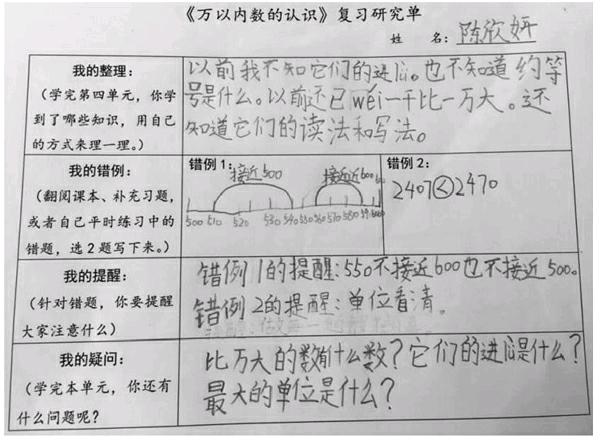 《万以内数的认识》复习研究单
姓 名：陈欣妍
我的整理：
（学完第四单元，你学
到了哪些知识，用自己
的方式来理一理。）
以前我不知它们的进。也不知道约等
号是什么。以前还已wéi一千比一万大。还
知道它们的读法和写法。
我的错例：
（翻阅课本、补充习题，
或者自己平时练习中的
错题，选2题写下来。）
错例1：
接近500 接近600
500 510 520 530 540 550 560 570 580 590 600
错例2：
2407<2470
我的提醒：
（针对错题，你要提醒
大家注意什么）
错例1的提醒：550不接近600也不接近500。
错例2的提醒：单位看清。
我的疑问：
（学完本单元，你还有
什么问题呢？
比万大的数有什么数？它们的进是什么？
最大的单位是什么？